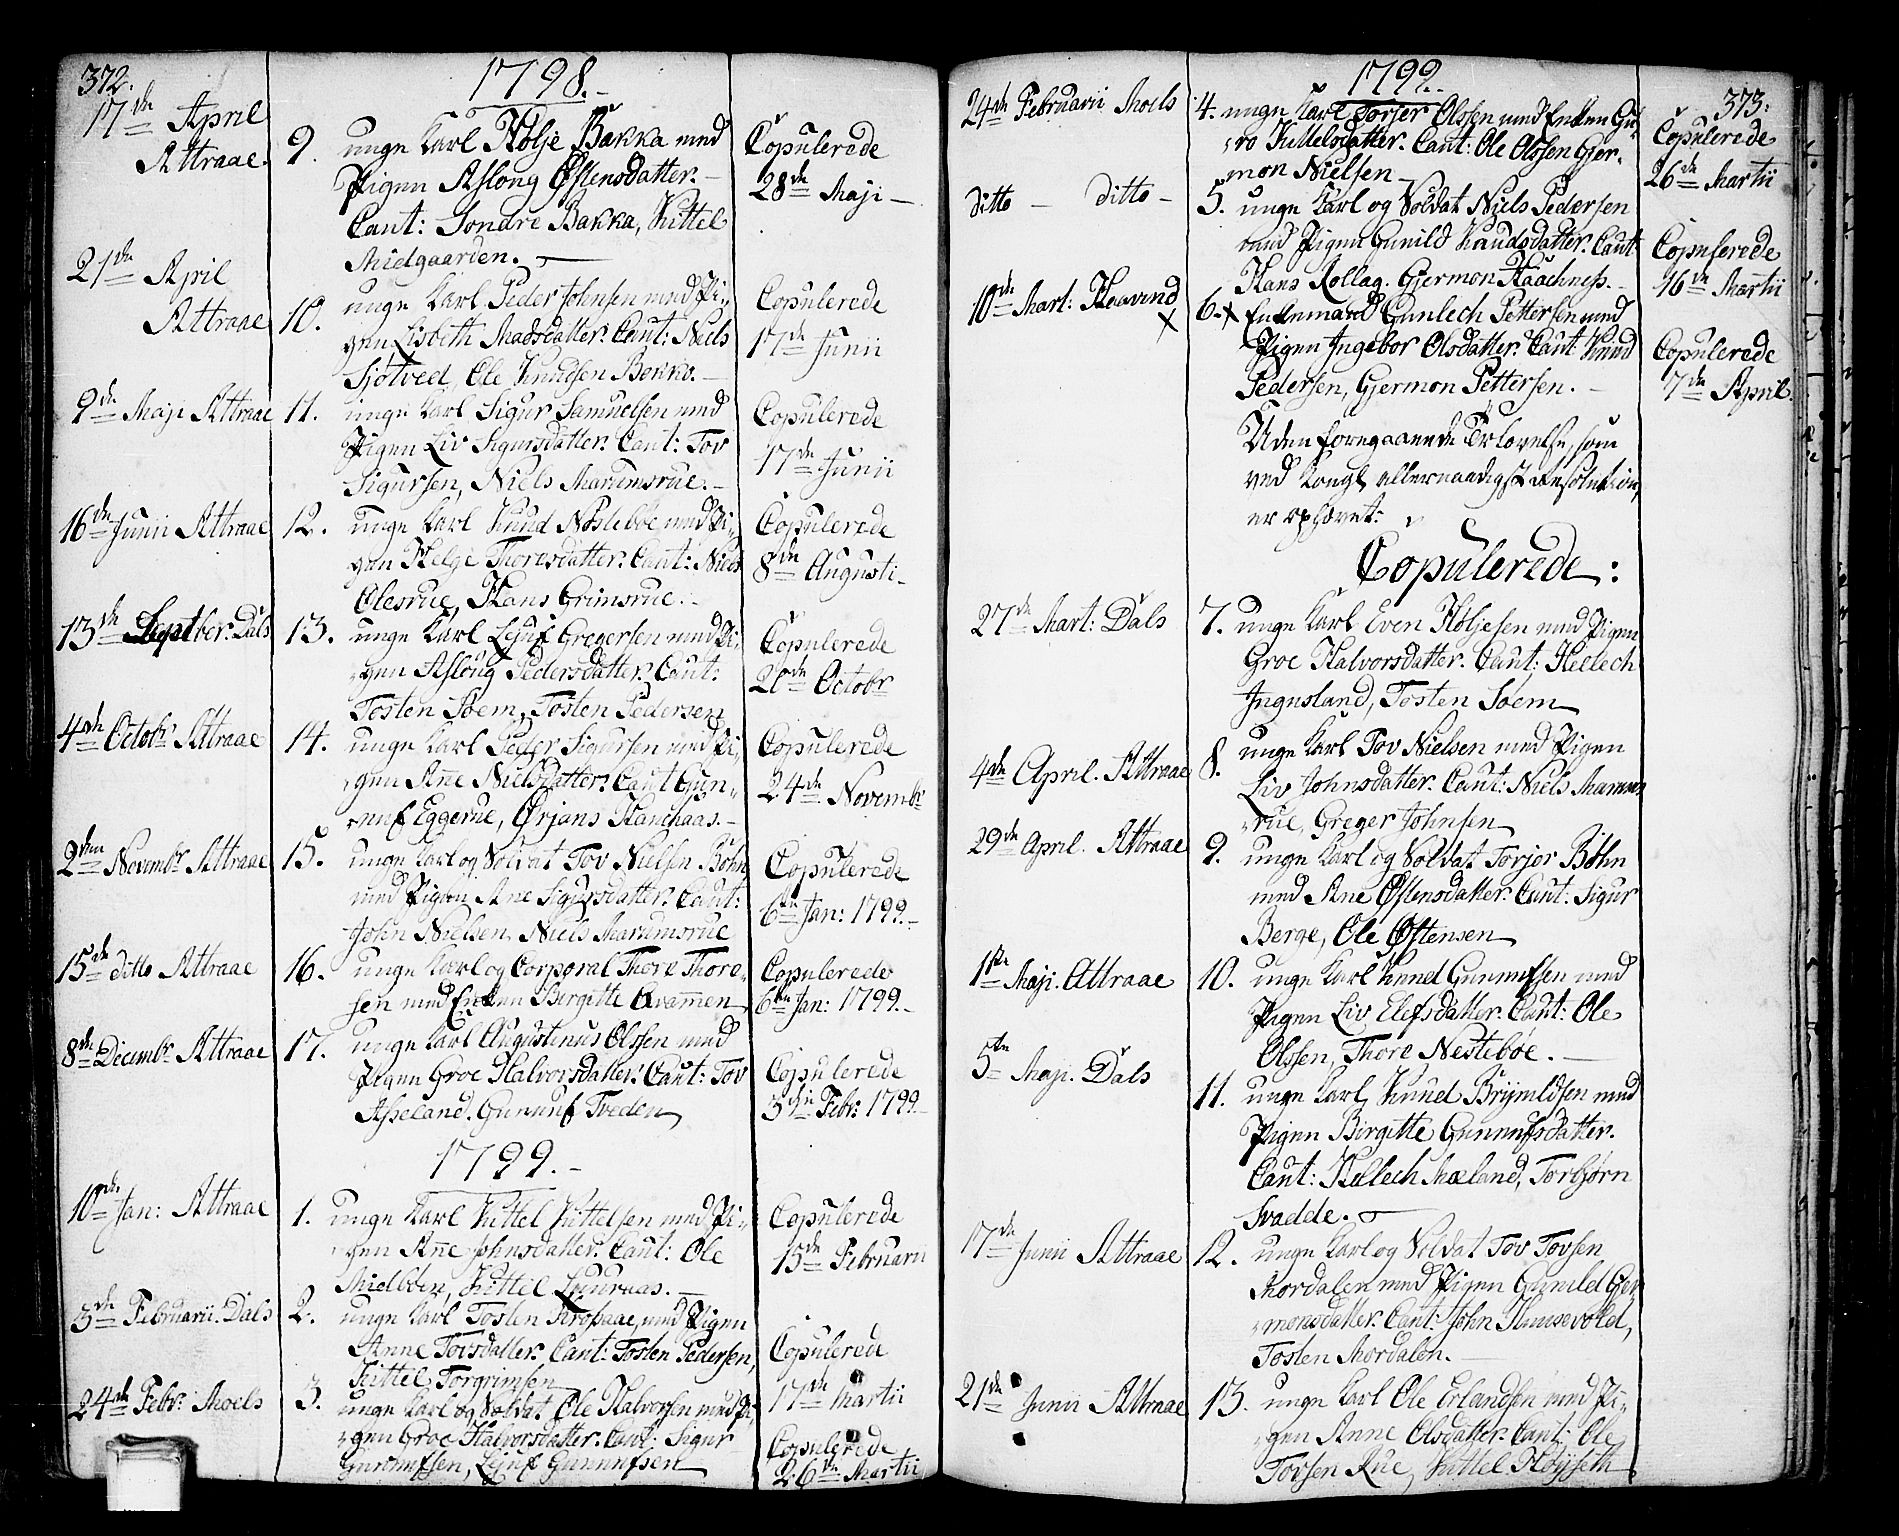 372.
1798.
17de April
Attraae.
9. unge Karl Hølje Bakka med
Pigen Aslong Østensdatter.
Cant: Sondre Bakka, Kittel
Mielgaarden.
Copulerede
28de Maji
21de April
Attraae
10. unge Karl Peder Johnsen med Pi-
gen Lisbeth Madsdatter. Caut: Niels
Sjøtved, Ole Knudsen Bekko.
Copulerede
17de Junii
9de Maji Attraae
11. unge Karl Sigur Samuelsen med
Pigen Liv Sigursdatter. Cant: Tov
Sigursen, Niels Marumsrue.
Copulerede
17de Junii
16de Junii Attraae
12. unge Karl Knud Nøsleboe med Pi-
gen Helge Thoresdatter. Cant: Niels
Olesrue, Hans Grimsrue.
Copulerede
8de Augusti
13de Septber: Dals
13. unge Karl Lejuf Gregersen med Pi-
gen Asløug Pedersdatter. Caut:
Tosten Soem, Tosten Pedersen
Copulerede
20de Octobr
4de Octobr Attraae
14. unge Karl Peder Sigursen med Pi-
gen Ane Nielsdatter. Caut Gun-
nuf Eggerue, Ørjans Kanhaas.
Copulerede
24de Novembr
2den Novembr Attraae
15. unge Karl og Soldat Tov Nielsen Bøhn
med Pigen Ane Sigursdatter. Caut:
John Nielsen, Niels Marumsrue
Copulerede
6te Jan: 1799.
15de ditto Attraae
16. unge Karl og Corporal Thore Thore-
sen med Enken Birgitte Qvammen
Copulerede
6te Jan: 1799.
8de Decembr Attraae
17. unge Karl Augustinus Olssen med
Pigen Groe Halvorsdatter. Caut: Tov
Asseland. Gunnuf Tveden
Copulerede
3die Febr: 1799.
1799.
10de Jan: Attraae
1. unge Karl Kittel Kittelsen med Pi-
gen Ane Johnsdatter. Caut: Ole
Mielboen, Kittel Luuraas.
Copulerede
15de Februarii
3de Februarii. Dals
2. unge Karl Tosten Krossaae, med Pigen
Anne Tovsdatter. Cant: Tosten Pedersen,
Kittel Torgrimsen
Copulerede
17de Martii
24de Febr: Moels
3. unge Karl og Soldat Ole Halvorsen med Pi-
gen Groe Halvorsdatter. Caut: Sigur
Gunnufsen, Lejuf Gunnufsen
Copulerede
26de Martii
1799.
373.
24de Februarii Moels
4. unge Karl Torjer Olssen med Enken Gu-
ro Kittelsdatter. Cant: Ole Olssen Gjer-
mon Nielsen
Copulerede
26de Martii
ditto - ditto -
5. unge Karl og Soldat Niels Pedersen
med Pigen Gunild Knudsdatter. Caut
Hans Rollag. Gjermon Haachness.
Copulerede
16de Martii
10de Mart: Hoavind
6. x Enkemand Gunlech Pettersen med
x
Pigen Ingebor Olsdatter. Caut Knud
Pedersen, Gjermon Pettersen.
Copulerede
7de April.
Uden foregaaende Trlovelse, som
ved Kongl allernaadigst resolution,
er ophævet:
Copulerede:
27de Mart: Dals
7. unge Karl Even Høljesen med Pigen
Groe Halvorsdatter. Caut: Hellech
Ingusland, Tosten Soem
4de April. Attraae
8. unge Karl Tov Nielsen med Pigen
Liv Johnsdatter. Caut: Niels Marums
rue, Greger Johnsen
29de April. Attraae
9. unge Karl og Soldat Torjer Bøhn
med Ane Østensdatter. Caut: Sigur
Berge, Ole Østensen
1ste Maji. Attraae
10. unge Karl Knud Gunnufsen med
Pigen Liv Elefsdatter. Caut: Ole
Olssen, Thore Nestebøe.
5te Maji. Dals
11. unge Karl Knud Brynildsen med
Pigen Birgitte Gunnufsdatter.
Caut: Hellech Mæland, Torbjørn
Svadde.
17de Junii Attraae
12. unge Karl og Soldat Tov Tovsen
Mordalen med Pigen Gunild Gjer
monsdatter. Cant: John Huusevold,
Tosten Mordalen.
21de Junii Attraae
13. unge Karl Ole Erlandsen med Pi-
gen Anne Olsdatter. Cant: Ole
Tovsen Rue, Kittel Højseth